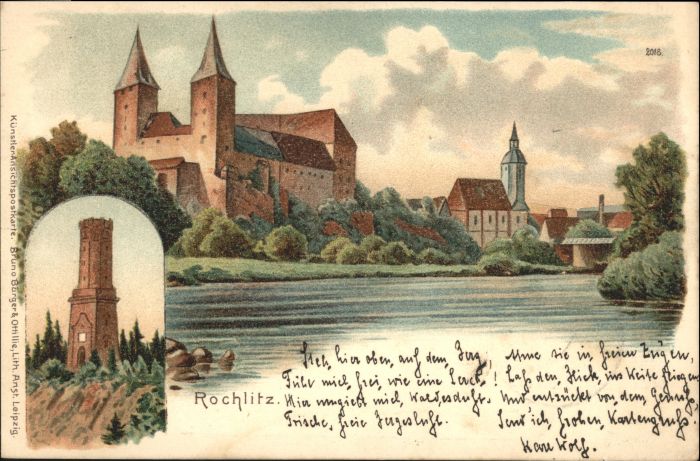 2016.
Künstler-Ansichtspostkarte. Bruno Bürger & Ottilie, Lith. Anst. Leipzig.
Rochlitz.
Steh, hier oben, auf dem Berg,
Fühl mich frei, wie eine Lerch'!
Hier umgiebt mich, Waldesduft.
Frische, freie Bergesluft.
Atme sie in freien Zügen,
Laß den Blick, ins Weite fliegen
Und entzückt von dem Genuß
Send' ich, frohen Kartengruß.
Karl Wolf.